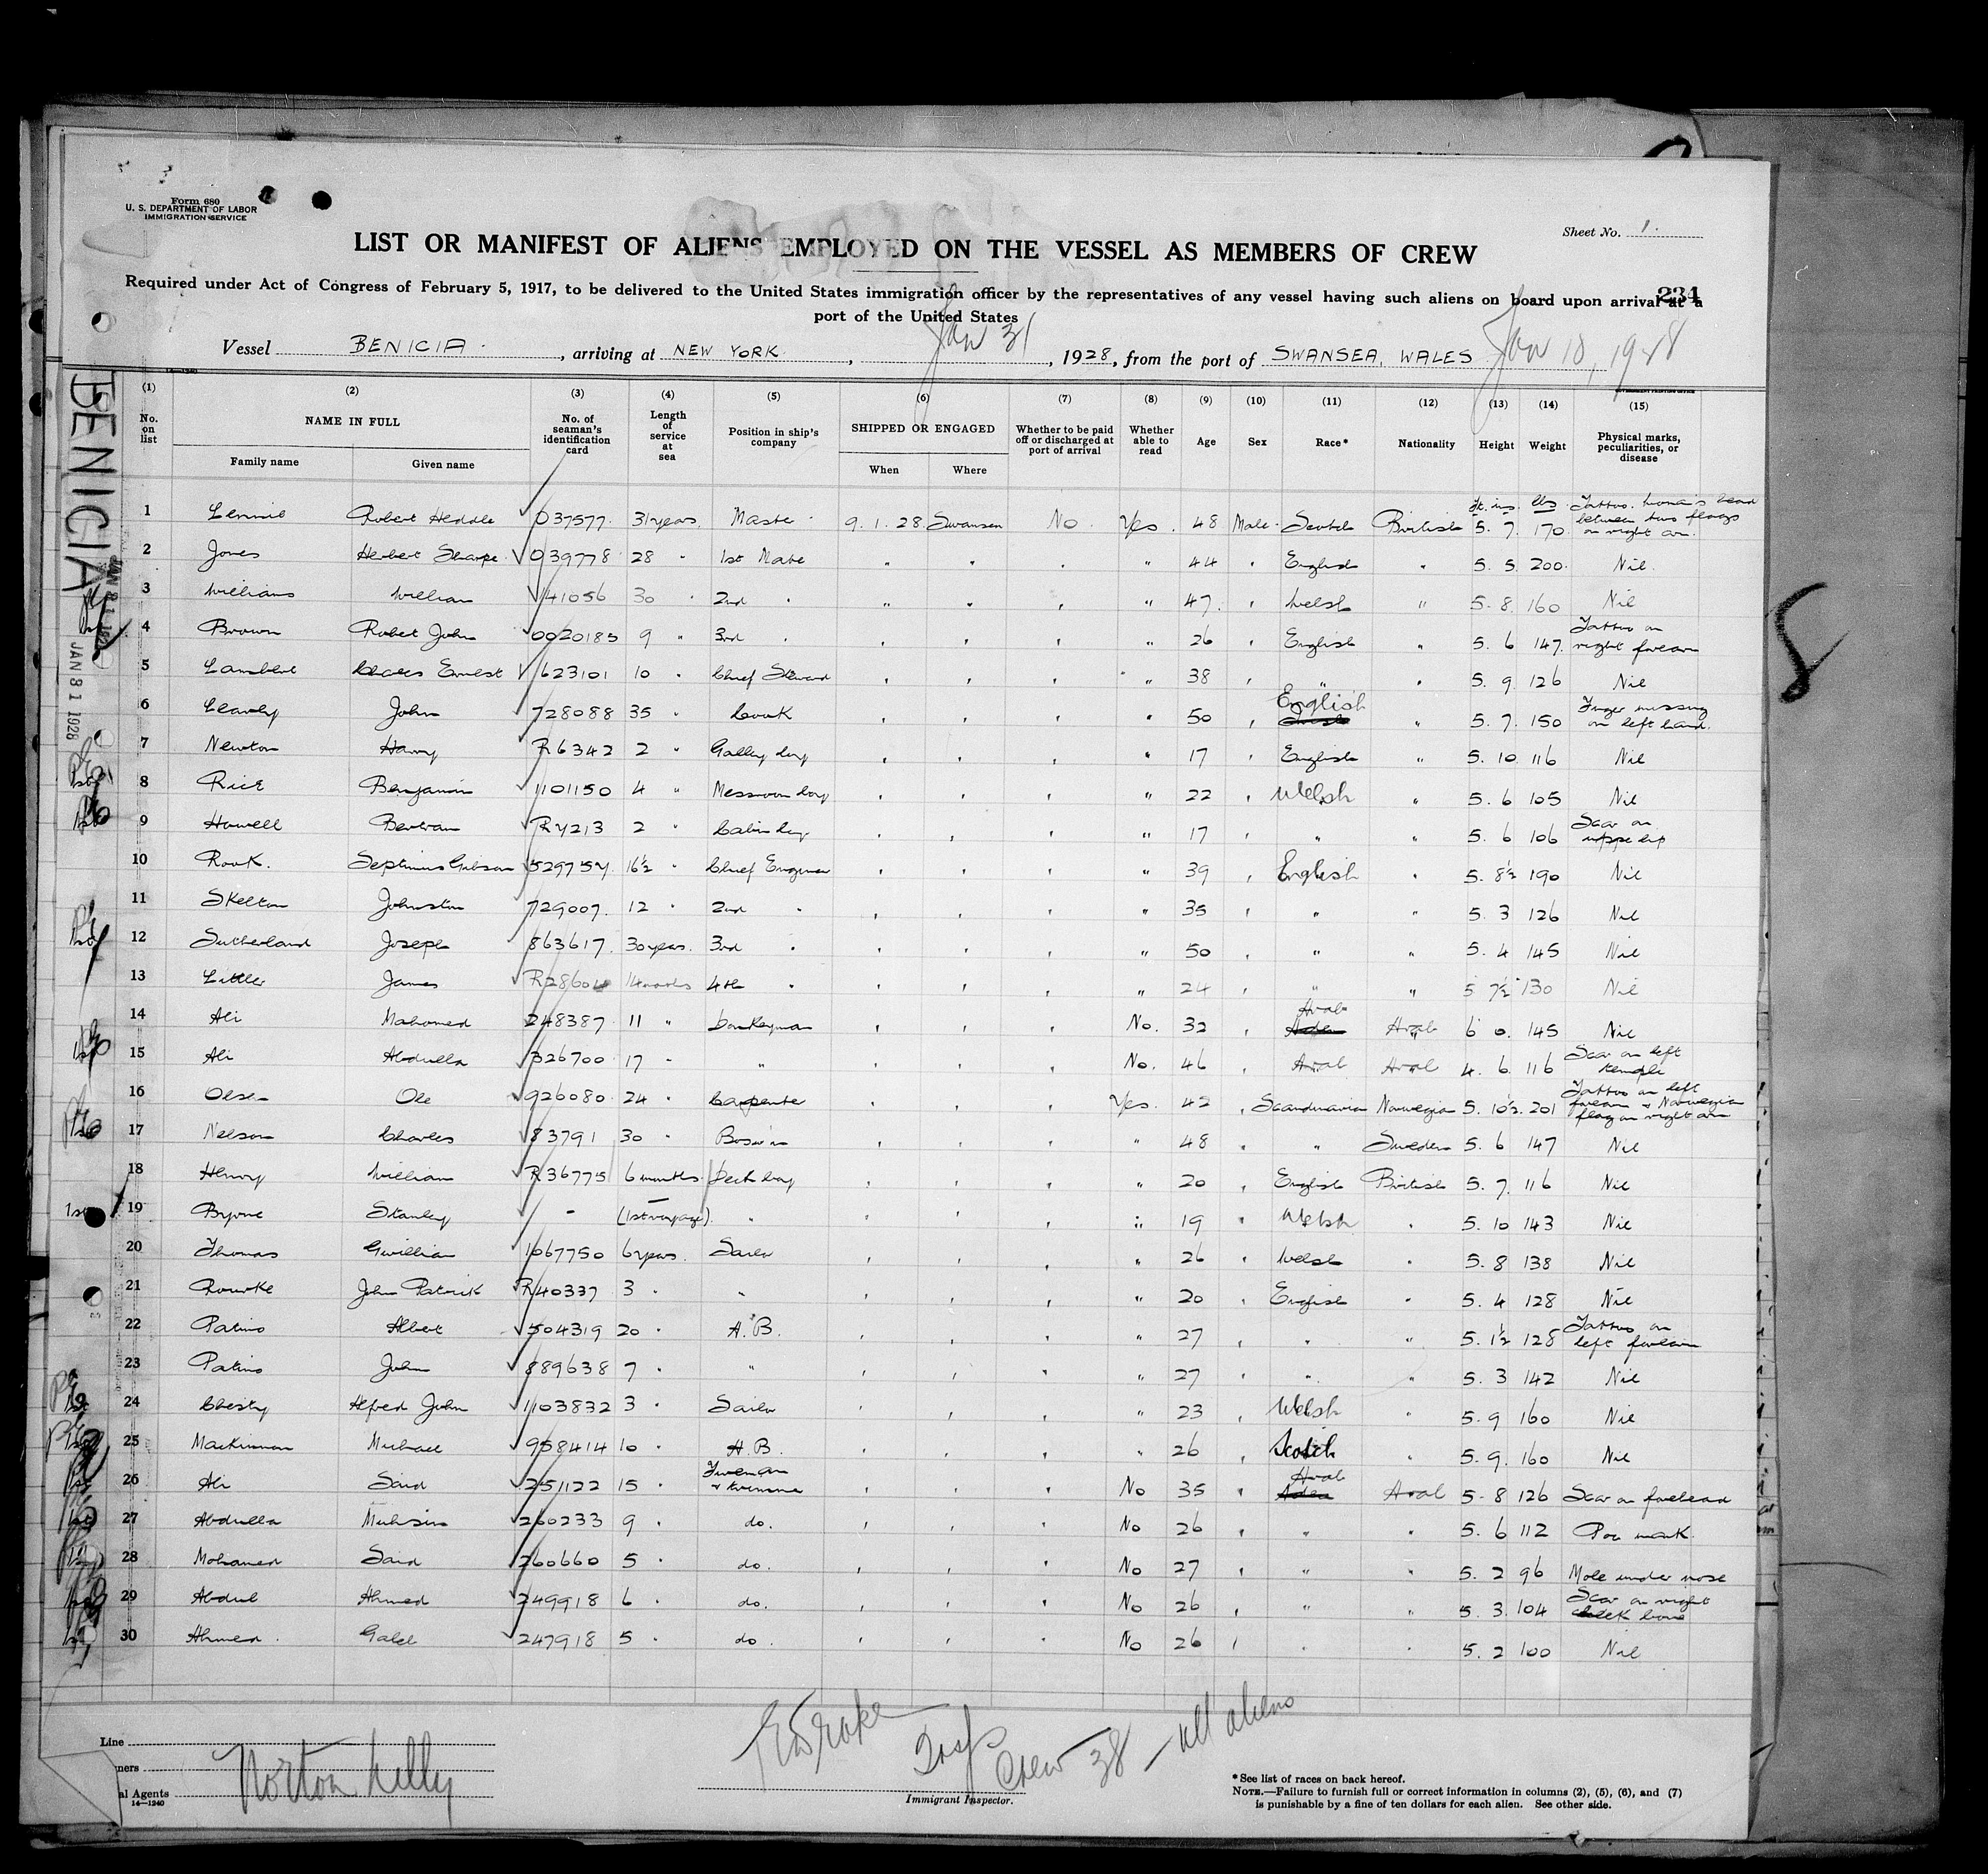 Form 680
U. S. DEPARTMENT OF LABOR
IMMIGRATION SERVICE
Sheet No. 1.
LIST OR MANIFEST OF ALIENS EMPLOYED ON THE VESSEL AS MEMBERS OF CREW
234
Required under Act of Congress of February 5, 1917, to be delivered to the United States immigration officer by the representatives of any vessel having such aliens on board upon arrival at a
port of the United States
Vessel BENICIA, arriving at NEW YORK, Jan 31, 1928, from the port of SWANSEA, WALES Jan 10, 1928
BENICIA
JAN 31 1928
(1) (2) (3) (4) (5) (6) (7) (8) (9) (10) (11) (12) (13) (14) (15)
No. on list NAME IN FULL No. of seaman's identification card Length of service at sea Position in ship's company SHIPPED OR ENGAGED Whether to be paid off or discharged at port of arrival Whether able to read Age Sex Race* Nationality Height Weight Physical marks, peculiarities, or disease
Family name Given name When Where
ft. ins. lbs
1 Lennie Robert Heddle 037577 31 years Master 9. 1. 28 Swansea No Yes 48 Male Scotch British 5. 7. 170 Tattoo. between two flags on right arm
2 Jones Herbert Sharpe 039778 28 " 1st Mate " " " " 44 " English " 5. 5 200 Nil
3 Williams William 41056 30 " 2nd " " " " " 47 " Welsh " 5. 8 160 Nil
4 Brown Robert John 0020185 9 " 3rd " " " " " 26 " English " 5. 6 147 Tattoo on right forearm
5 Lambert Charles Ernest 623101 10 " Chief Steward " " " " 38 " " " 5. 9 126 Nil
6 Leavey John 728088 35 " Cook " " " " 50 " English " 5. 7. 150 Finger missing on left hand
7 Newton Harry R6342 2 " Galley boy " " " " 17 " English " 5. 10 116 Nil
8 Rice Benjamin 1101150 4 " Messroom boy " " " " 22 " Welsh " 5. 6 105 Nil
9 Howell Bertram 2 " Cabin boy " " " " 17 " " " 5. 6 106 Scar on upper lip
10 Rook Septimus Gibson 529757 16½ " Chief Engineer " " " " 39 " English " 5. 8½ 190 Nil
11 Skelton Johnston 729007 12 " 2nd " " " " " 35 " " " 5. 3 126 Nil
12 Sutherland Joseph 863617 30 years 3rd " " " " " 50 " " " 5. 4 145 Nil
13 Littler James 14 months 4th " " " " " 24 " " " 5 7½ 130 Nil
14 Ali Mahomed 248387 11 " Donkeyman " " " No. 32 " Arab Arab 6 0. 145 Nil
15 Ali Abdulla 326700 17 " " " " " No. 46 " Arab Arab 4. 6 116 Scar on left temple
16 Olsen Ole 926080 24 " Carpenter " " " Yes. 42 " Scandinavian Norwegian 5. 10½ 201 Tattoo on left forearm & Norwegian flag on right arm
17 Nelson Charles 83791 30 " Bosun " " " " 48 " " Sweden 5. 6 147 Nil
18 Henry William R36775 6 months Deck boy " " " " 20 " English British 5. 7. 116 Nil
19 Byrne Stanley - (1st voyage) " " " " " 19 " Welsh " 5. 10 143 Nil
20 Thomas Gwilliam 1067750 6 years Sailor " " " " 26 " Welsh " 5. 8 138 Nil
21 Rourke John Patrick R40337 3 " " " " " " 20 " English " 5. 4 128 Nil
22 Patino Albert 504319 20 " A.B. " " " " 27 " " " 5. 1½ 128 Tattoo on left forearm
23 Patino John 889638 7 " " " " " " 27 " " " 5. 3 142 Nil
24 Chesty Alfred John 1103832 3 " Sailor " " " " 23 " Welsh " 5. 9 160 Nil
25 MacKinnon Michael 958414 10 " A.B. " " " " 26 " Scotch " 5. 9. 160 Nil
26 Ali Said 251122 15 " Fireman & trimmer " " " No 35 " Arab Arab 5. 8 126 Scar on forehead
27 Abdulla Muhsin 260233 9 " do. " " " No 26 " " " 5. 6 112 Pox mark
28 Mohamed Said 260660 5 " do. " " " No 27 " " " 5. 2 96 Mole under nose
29 Abdul Ahmed 249918 6 " do. " " " No 26 " " " 5. 3. 104 Scar on right cheek bone
30 Ahmed Galeb 247918 5 " do. " " " No 26 " " " 5. 2 100 Nil
Line
ners
al Agents
14—1240
Norton Lilly
Crew 38 — all aliens
Immigrant Inspector.
* See list of races on back hereof.
NOTE.—Failure to furnish full or correct information in columns (2), (5), (6), and (7)
is punishable by a fine of ten dollars for each alien. See other side.
8